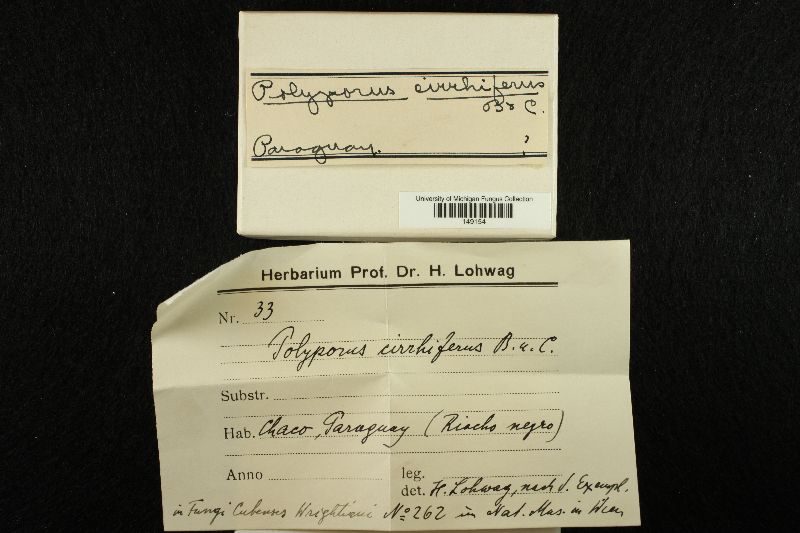 Polyporus cirrhiferus
B & C.
Paraguay. ?
University of Michigan Fungus Collection
149154
Herbarium Prof. Dr. H. Lohwag
Nr. 33
Polyporus cirrhiferus B. u. C.
Substr.
Hab. Chaco, Paraguay (Riacho negro)
Anno
leg.
det. H. Lohwag, nach d. Exempl.
in Fungi Cubenses Wrightiani No 262 in Nat. Mus. in Wien